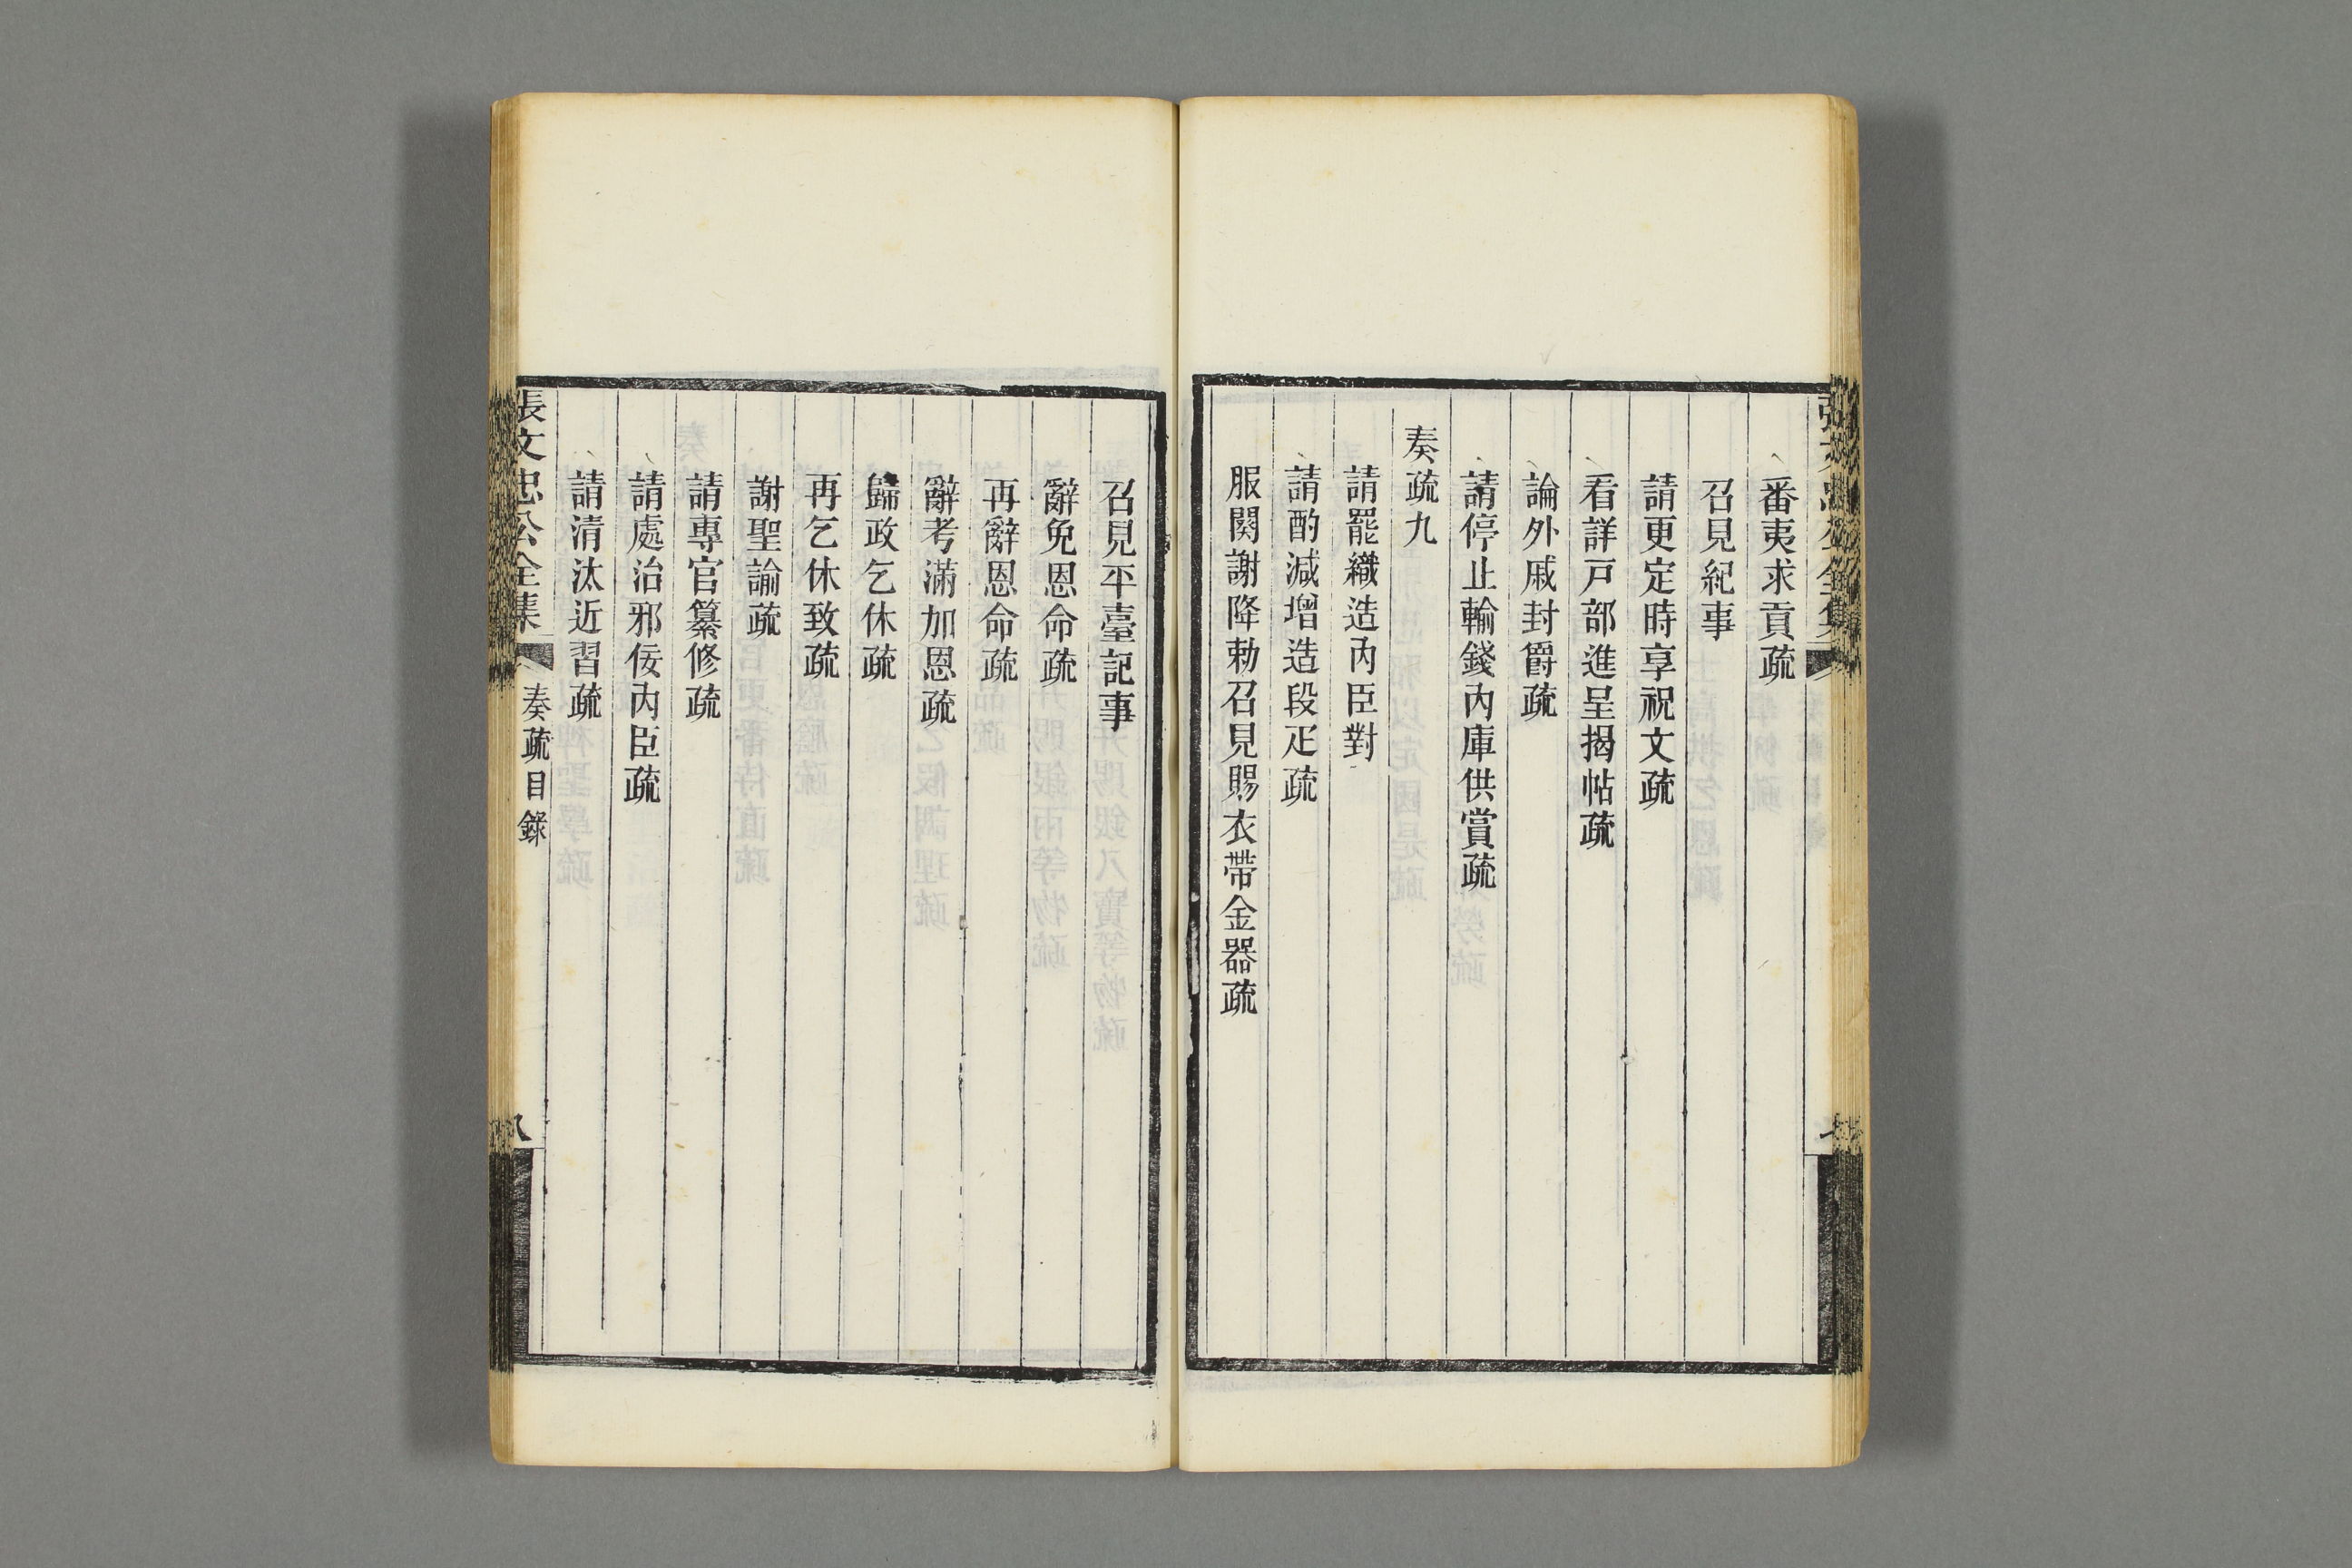 張文忠公全集
番夷求貢疏
召見紀事
請更定時享祝文疏
看詳戸部進呈揭帖疏
論外戚封爵疏
請停止輸錢內庫供賞疏
奏疏九
請罷織造內臣對
請酌減增造段疋疏
服闋謝降勅召見賜衣帶金器疏
召見平臺記事
辭免恩命疏
再辭恩命疏
辭考滿加恩疏
歸政乞休疏
再乞休致疏
謝聖諭疏
請專官纂修疏
請處治邪佞內臣疏
請清汰近習疏
張文忠公全集
奏疏目錄
八